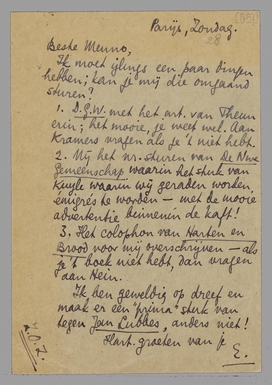 Parijs, Zondag.
28
Beste Menno,
Ik moet ijlings een paar dingen
hebben; kan je mij die omgaand
sturen?
1. D.G.W. met het art. van Theun
erin; het mooie, je weet wel. Aan
Kramers vragen als je 't niet hebt.
2. Mij het nr. sturen van De Nwe
Gemeenschap waarin het stuk van
Kuyle waarin wij geraden worden
émigrés te worden — met de mooie
advertentie binnenin de kaft!
3. Het colophon van Harten en
Brood voor mij overschrijven — als
je 't boek niet hebt, dan vragen
aan Hein.
Ik ben geweldig op dreef en
maak er een "prima" stuk van
tegen Jan Lubbes, anders niet!
Hart. groeten van je
E.
Z.O.Z.